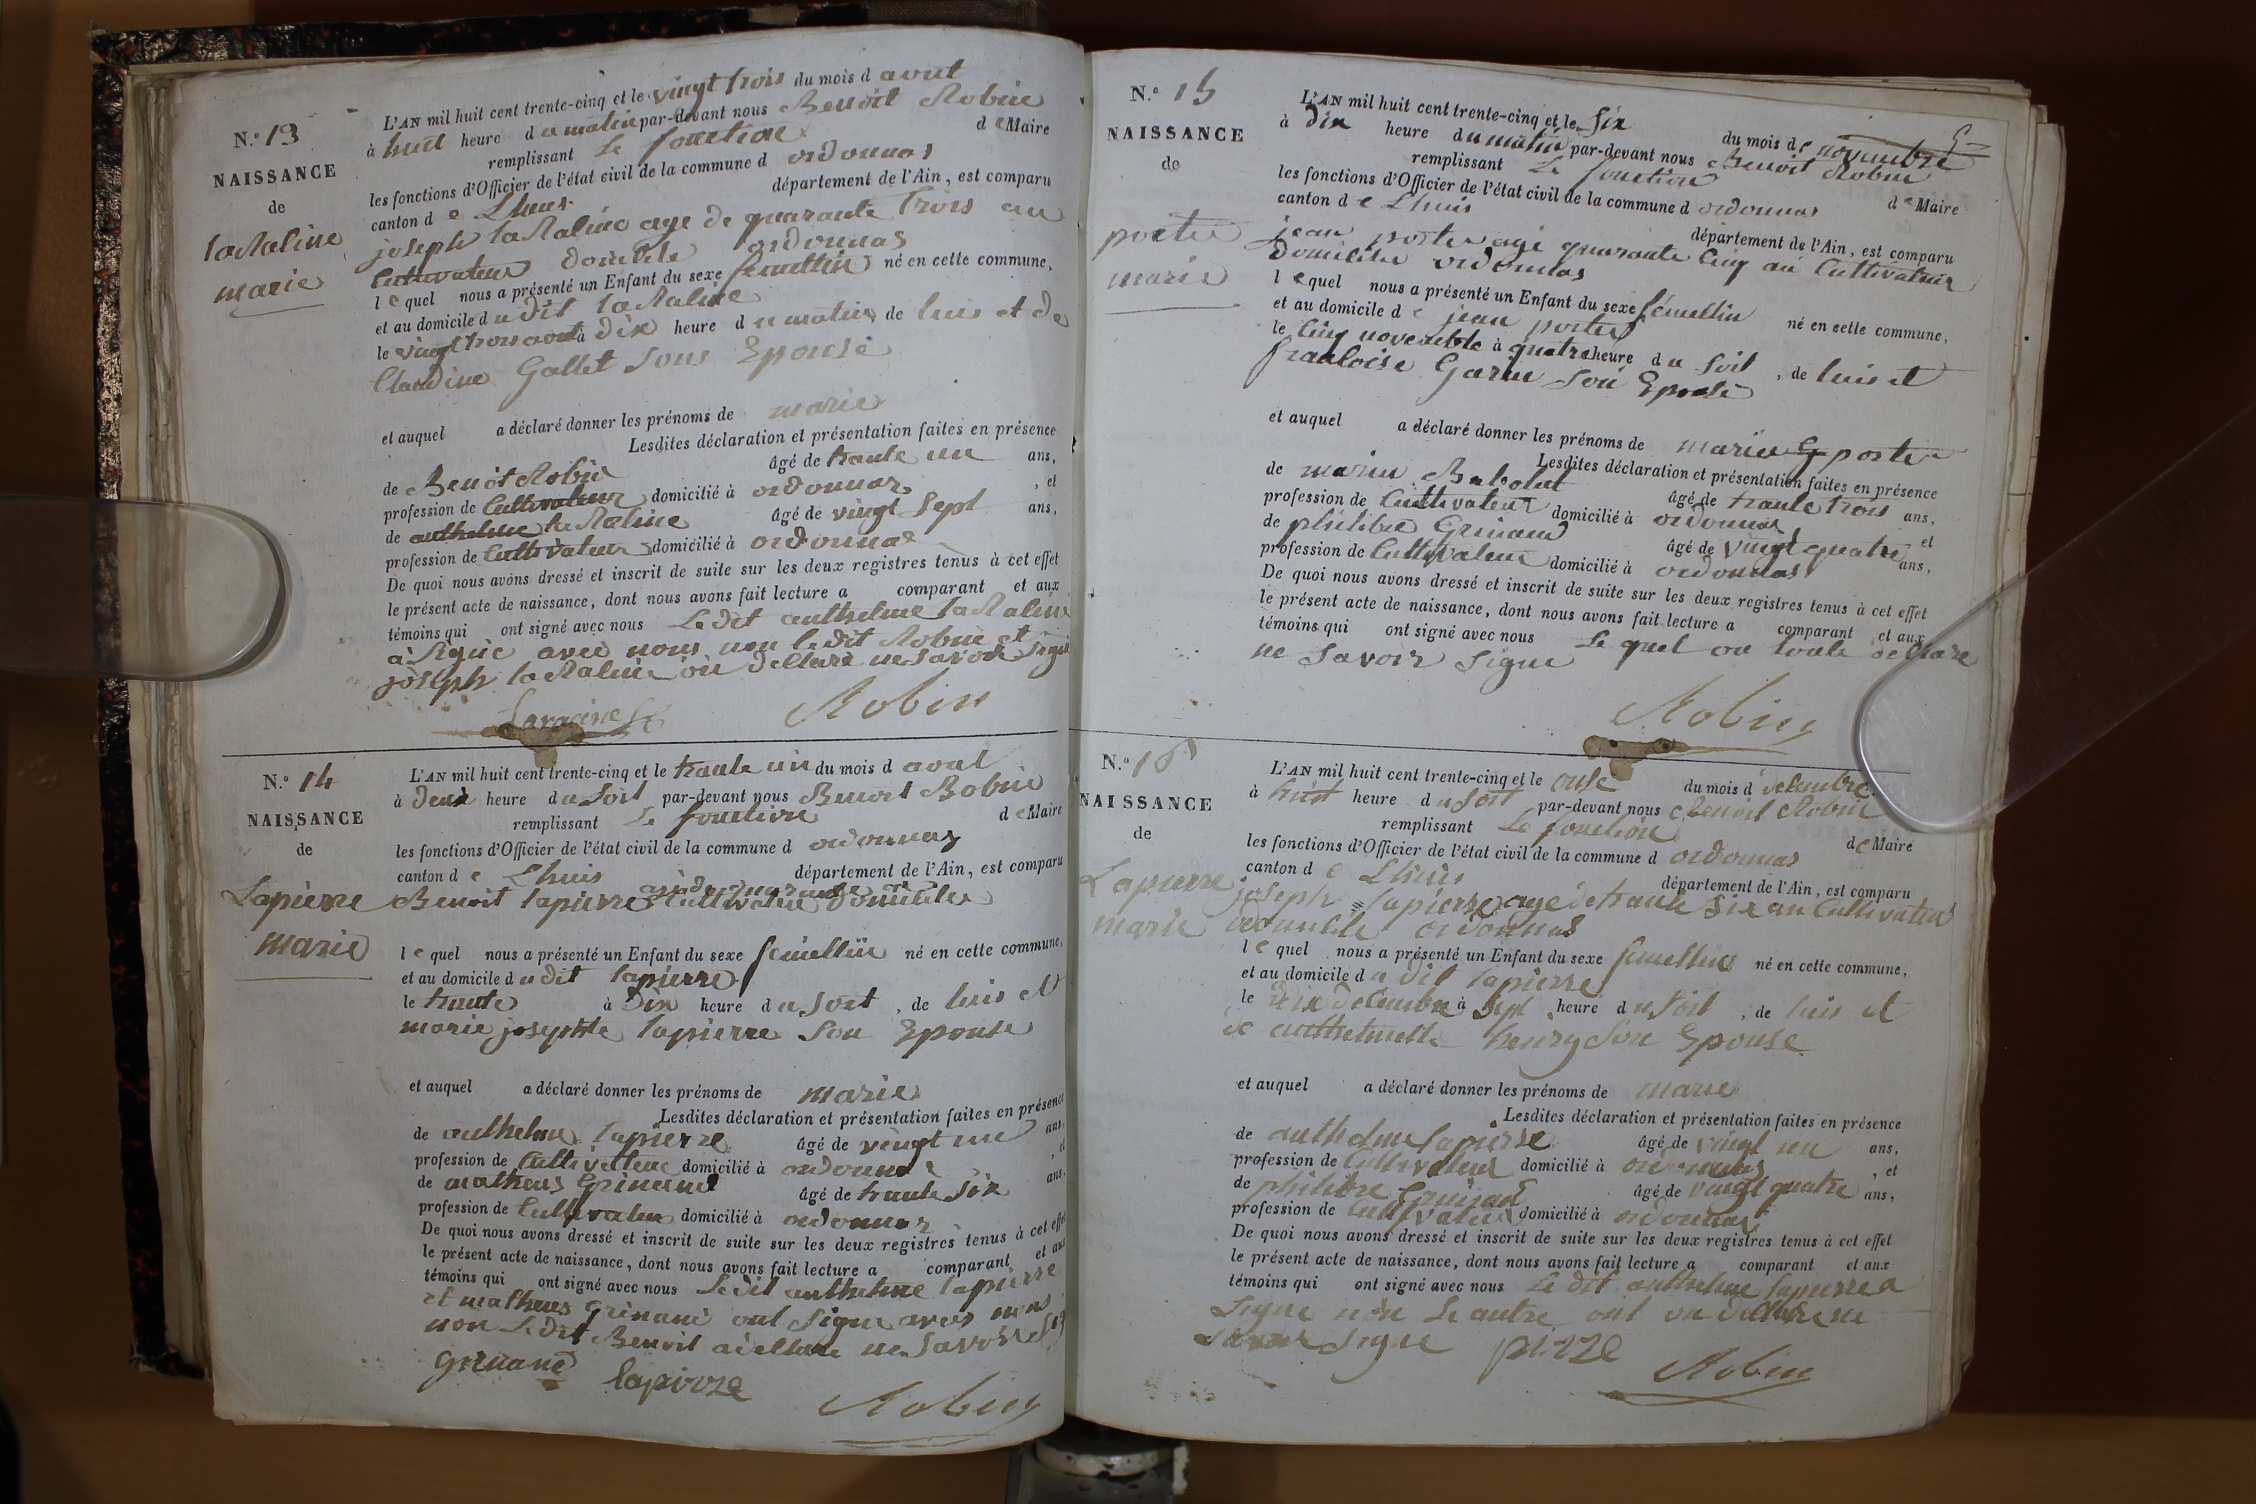 N.° 13
NAISSANCE
de
laRaline
marie
L'AN mil huit cent trente-cinq et le vingt trois du mois d aout
à huit heure du matin par-devant nous Benoit Robin
remplissant le fonction de Maire
les fonctions d'Officier de l'état civil de la commune d ordonnas
canton de Lhuis département de l'Ain, est comparu
joseph laRaline age de quarante trois an
Cultivateur domicile ordonnas
lequel nous a présenté un Enfant du sexe femellin né en cette commune,
et au domicile du dit laRaline
le vingt trois aout à dix heure du matin, de luis et de
Claudine Gallet sous Epouse
et auquel a déclaré donner les prénoms de marie
Lesdites déclaration et présentation faites en présence
de Benoit Robin âgé de trante un ans,
profession de Cultivateur domicilié à ordonnas, et
de anthelme laRaline âgé de vingt sept ans,
profession de Cultivateur domicilié à ordonnas
De quoi nous avons dressé et inscrit de suite sur les deux registres tenus à cet effet
le présent acte de naissance, dont nous avons fait lecture a comparant et aux
témoins qui ont signé avec nous Ledit anthelme laRaline
à Signé avec nous non ledit Robin et
joseph laRaline on declare ne savoir signé
Laracine
Robin
N.° 14
NAISSANCE
de
Lapierre
marie
L'AN mil huit cent trente-cinq et le trante un du mois d aout
à deux heure du Soit par-devant nous Benoit Robin
remplissant le fonction de Maire
les fonctions d'Officier de l'état civil de la commune d ordonnas
canton de Lhuis département de l'Ain, est comparu
age de quarante
Benoit lapierre Cultivateur domicilier
lequel nous a présenté un Enfant du sexe femellin né en cette commune,
et au domicile du dit lapierre
le trante à dix heure du Soit, de luis et
marie josephte lapierre son Epouse
et auquel a déclaré donner les prénoms de marie
Lesdites déclaration et présentation faites en présence
de anthelme lapierre âgé de vingt un ans,
profession de Cultivateur domicilié à ordonnas, et
de matheus Grinand âgé de trante six ans,
profession de Cultivateur domicilié à ordonnas
De quoi nous avons dressé et inscrit de suite sur les deux registres tenus à cet effet
le présent acte de naissance, dont nous avons fait lecture a comparant et aux
témoins qui ont signé avec nous Ledit anthelme lapierre
et matheus grinand ont Signe avec nous
non Ledit Benoit a declare ne savoir
grinand
lapirre
Robin
N.° 15
NAISSANCE
de
portier
marie
L'AN mil huit cent trente-cinq et le six du mois de novembre
à dix heure du matin par-devant nous Benoit Robin
remplissant Le fonction de Maire
les fonctions d'Officier de l'état civil de la commune d ordonnas
canton de Lhuis département de l'Ain, est comparu
jean portier agé quarante cinq an Cultivateur
domicilier ordonnas
lequel nous a présenté un Enfant du sexe femellin né en cette commune,
et au domicile de jean portier
le cinq novembre à quatre heure du soit, de luis et
francoise Garin son Epouse
et auquel a déclaré donner les prénoms de marie portier
Lesdites déclaration et présentation faites en présence
de marin Babolat âgé de trante trois ans,
profession de Cultivateur domicilié à ordonnas, et
de philiber Grinand âgé de vingt quatre ans,
profession de Cultivateur domicilié à ordonnas
De quoi nous avons dressé et inscrit de suite sur les deux registres tenus à cet effet
le présent acte de naissance, dont nous avons fait lecture a comparant et aux
témoins qui ont signé avec nous Le quel on toute declare
ne savoir signe
Robin
N.° 16
NAISSANCE
de
Lapierre
marie
L'AN mil huit cent trente-cinq et le onse du mois d decembre
à huit heure du soit par-devant nous Benoit Robin
remplissant Le fonction de Maire
les fonctions d'Officier de l'état civil de la commune d ordonnas
canton de Lhuis département de l'Ain, est comparu
joseph lapierre age de trante six an Cultivateur
domicile ordonnas
lequel nous a présenté un Enfant du sexe femellin né en cette commune,
et au domicile du dit lapierre
le dix decembre à sept heure du soit, de luis et
de anthelmette henry son Epouse
et auquel a déclaré donner les prénoms de marie
Lesdites déclaration et présentation faites en présence
de anthelme lapierre âgé de vingt un ans,
profession de Cultivateur domicilié à ordonnas, et
de philibre Grinand âgé de vingt quatre ans,
profession de Cultivateur domicilié à ordonnas
De quoi nous avons dressé et inscrit de suite sur les deux registres tenus à cet effet
le présent acte de naissance, dont nous avons fait lecture a comparant et aux
témoins qui ont signé avec nous Le dit anthelme lapierre a
Signe non Le autre ont on declare ne
savoir signe
Robin